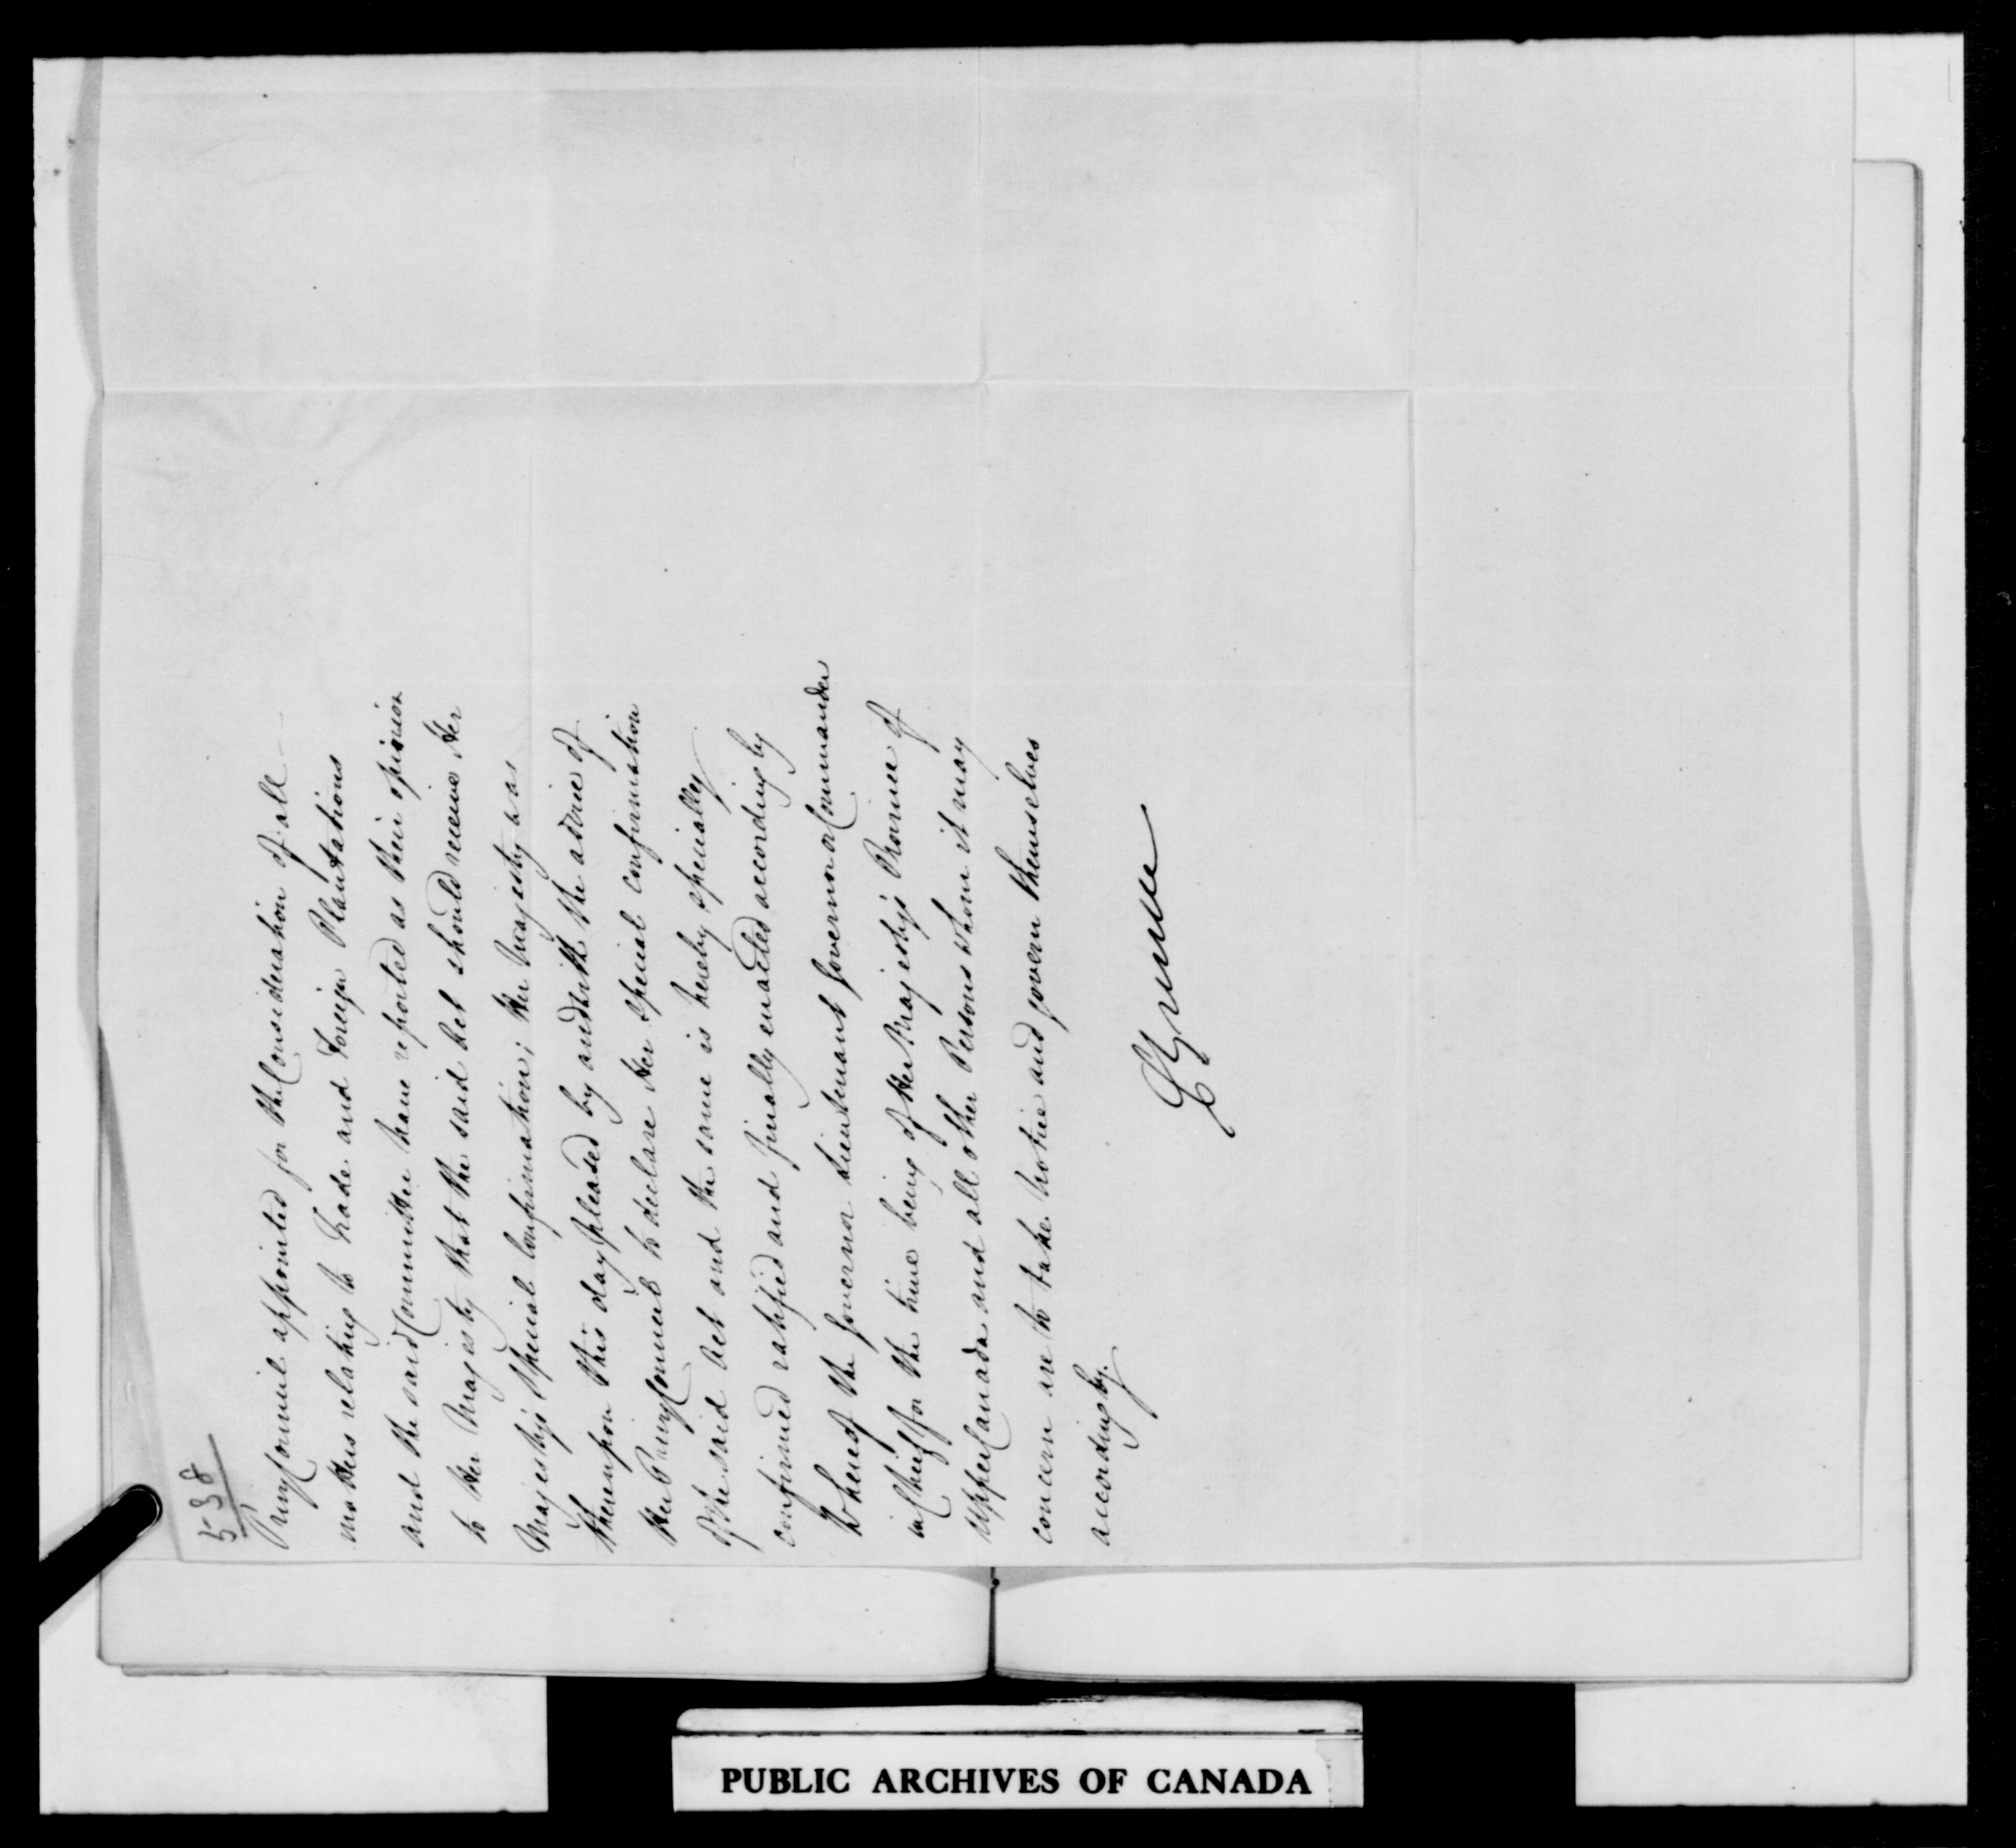 538
Privy Council appointed for the Consideration of all
matters relating to Trade and Foreign Plantations
and the said Committee have reported as their opinion
to Her Majesty that the said Act should receive Her
Majesty's Special Confirmation; Her Majesty was
thereupon this day pleased by and with the advice of
Her Privy Council to declare Her special confirmation
of the said Act and the same is hereby specially
confirmed ratified and finally enacted accordingly
Whereof the Governor Lieutenant Governor or Commander
in Chief for the time being of Her Majesty's Province of
Upper Canada and all other Persons whom it may
concern are to take Notice and govern themselves
accordingly.
PUBLIC ARCHIVES OF CANADA